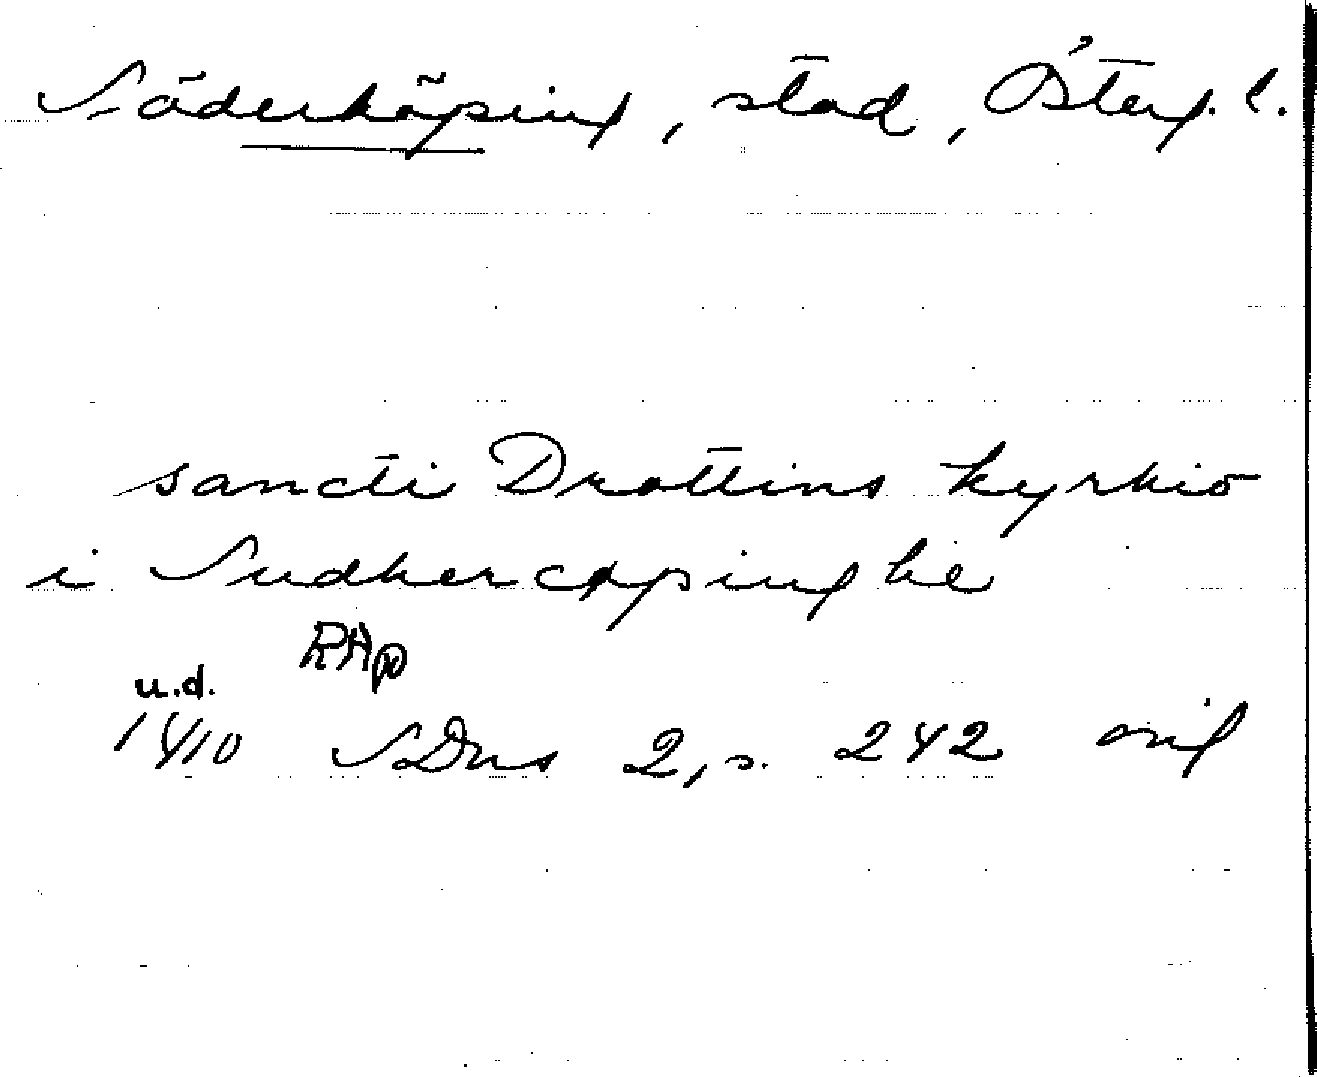 Söderköping, stad, Östergl.
sancti Drottins kyrkio
i Sudhercøpinghe
RAp
u.d.
1410 SDns 2, s. 242 orig